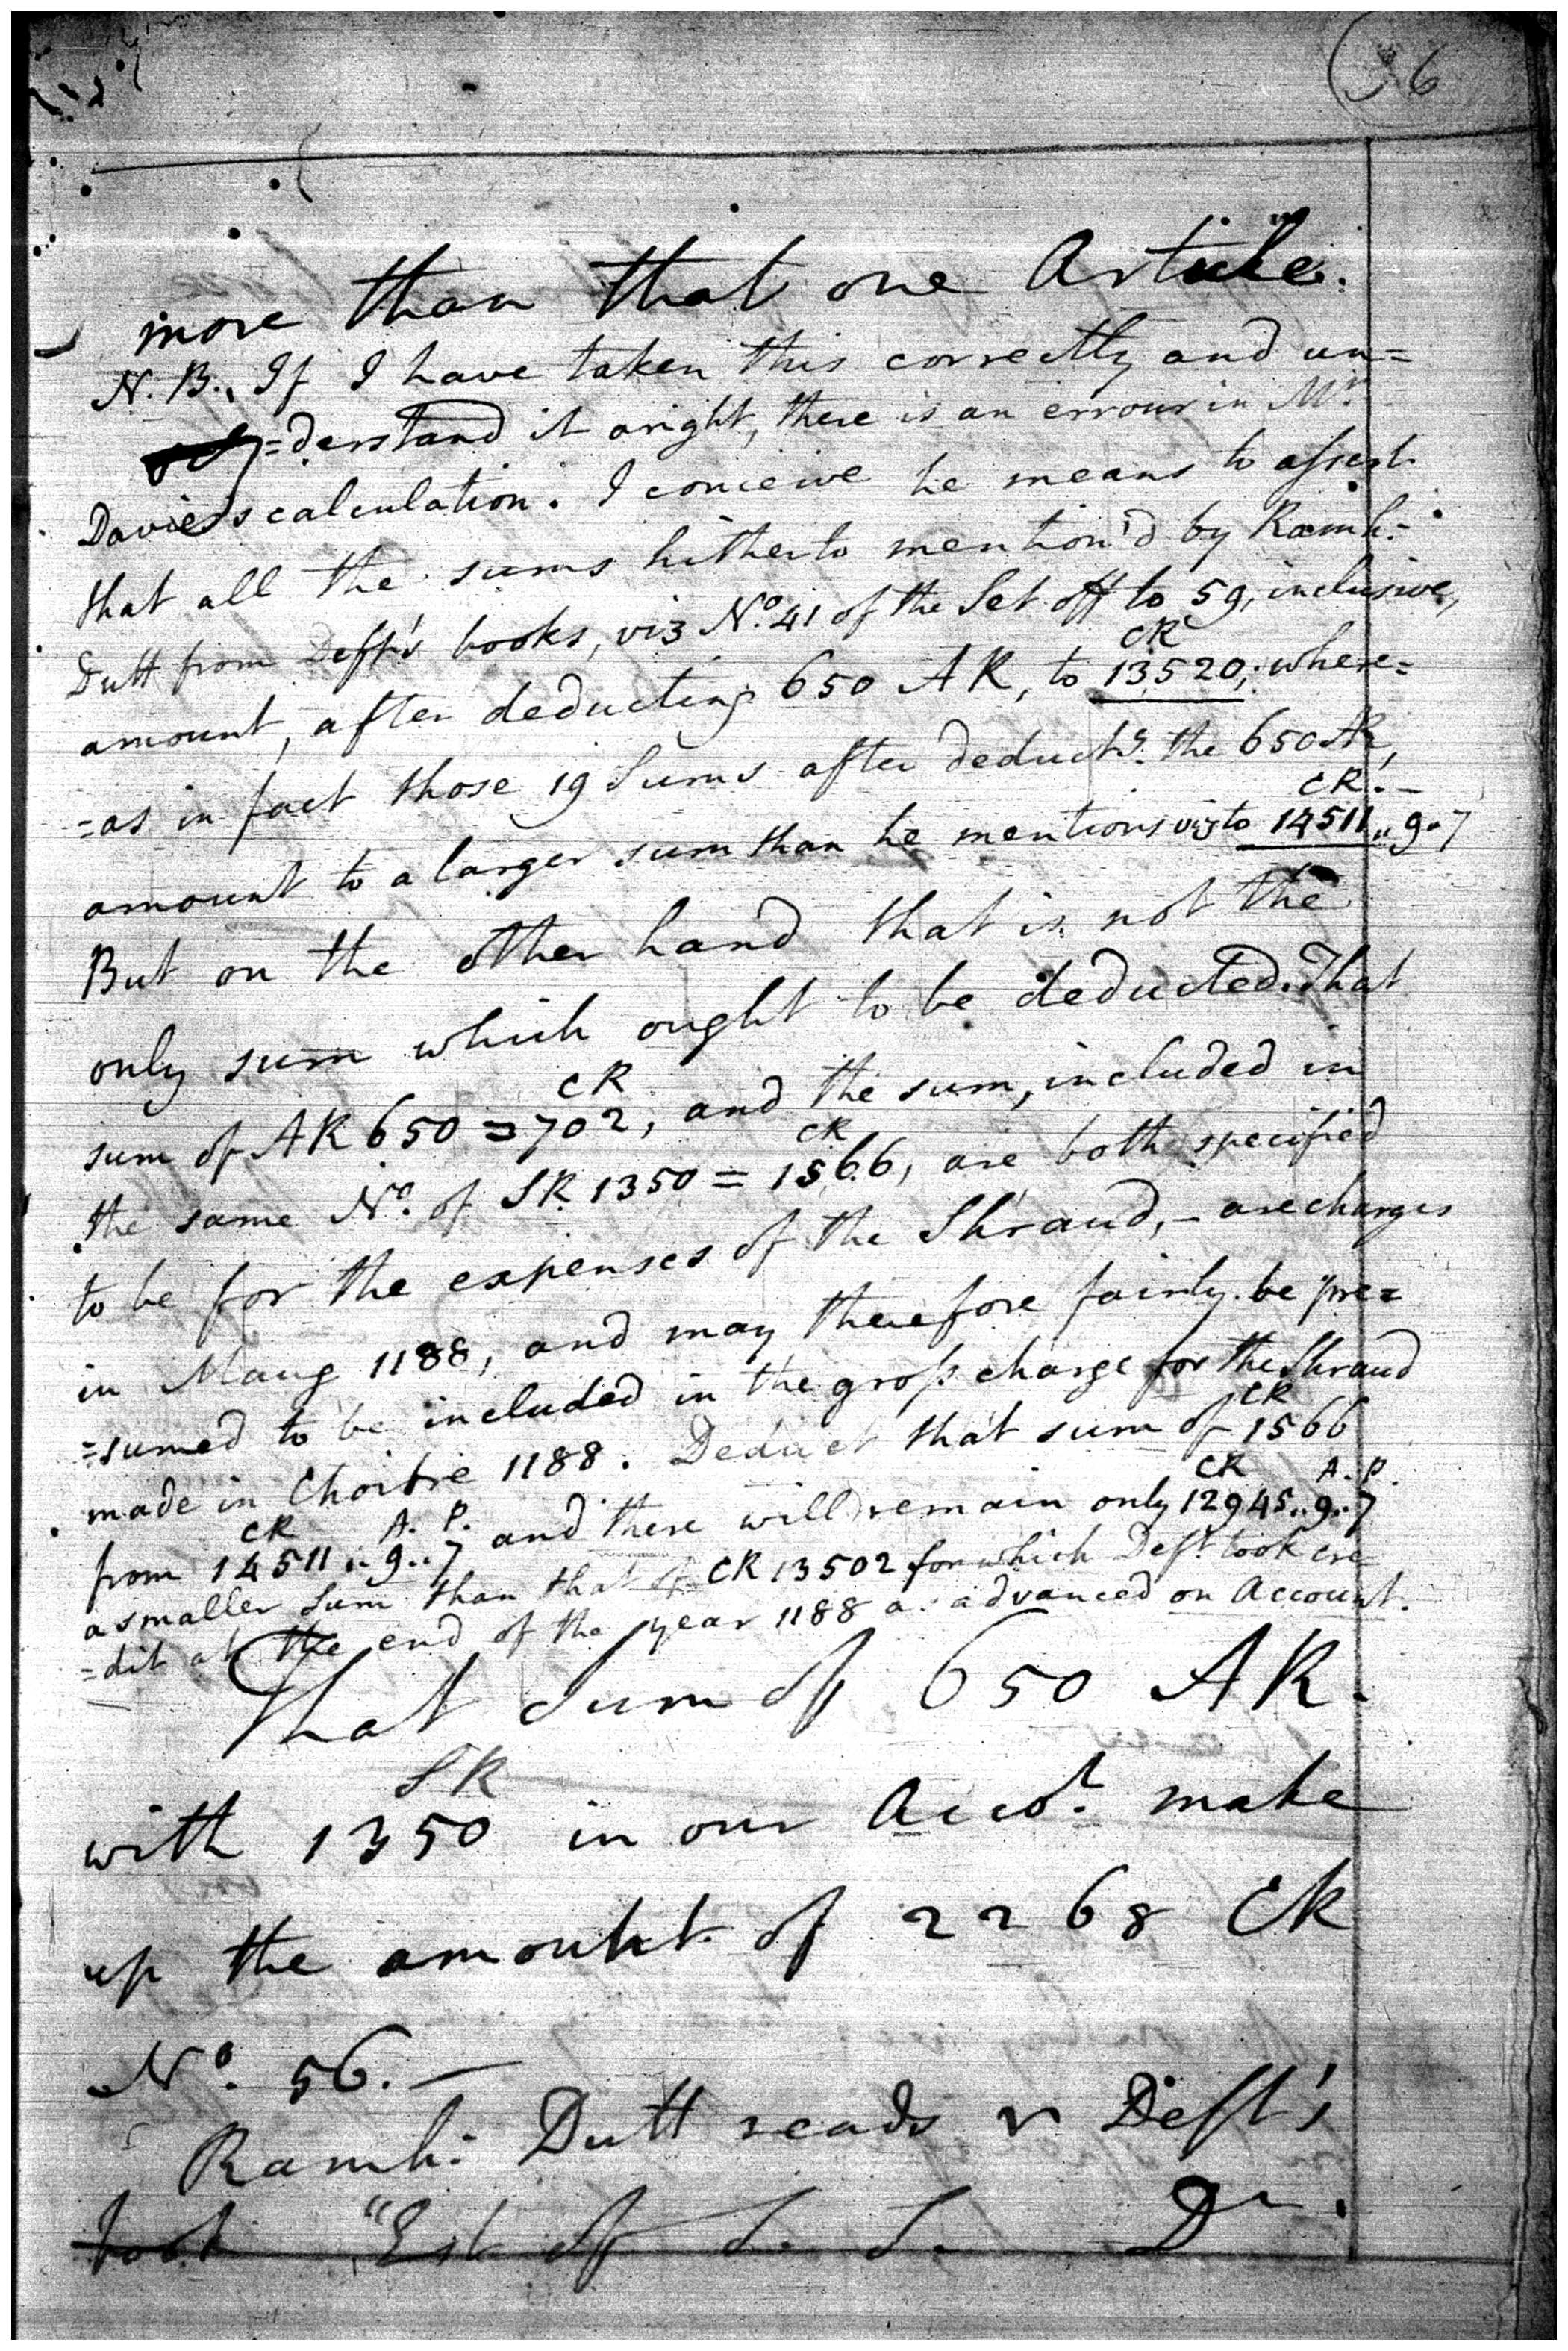 6
more than that one Article.
N. B., If I have taken this correctly and un=
=derstand it aright, there is an errour in Mr.
Davies's calculation. I conceive he means to assert
that all the sums hitherto mention'd by Ramk:
Dutt from Deft's books, viz No. 41 of the Set off to 59, inclusive,
amount, after deducting 650 AR, to CR 13520; where=
=as in fact those 19 Sums after deductg. the 650 AR,
amount to a larger sum than he mentions viz to CR. 14511 „ 9 „ 7
But on the other hand that is not the
only sum which ought to be deducted. That
sum of AR 650 = CR 702, and the sum, included in
the same No. of SR 1350 = CR 1566, are both specified
to be for the expenses of the Shraud, – are charges
in Maug 1188, and may therefore fairly be pre=
=sumed to be included in the gross charge for the Shraud
made in Choitre 1188. Deduct that sum of CR 1566
from CR 14511 .. A. 9 .. P. 7 and there will remain only CR 12945 .. A. 9 .. P. 7
a smaller Sum than that of CR 13502 for which Deft. took cre=
=dit at the end of the year 1188 as advanced on Account.
That Sum of 650 AR.
with SR 1350 in our Accot. make
up the amount of 2268 CR
No. 56. –
Ramk: Dutt reads Deft's
book "Est. of S. S. Dr.